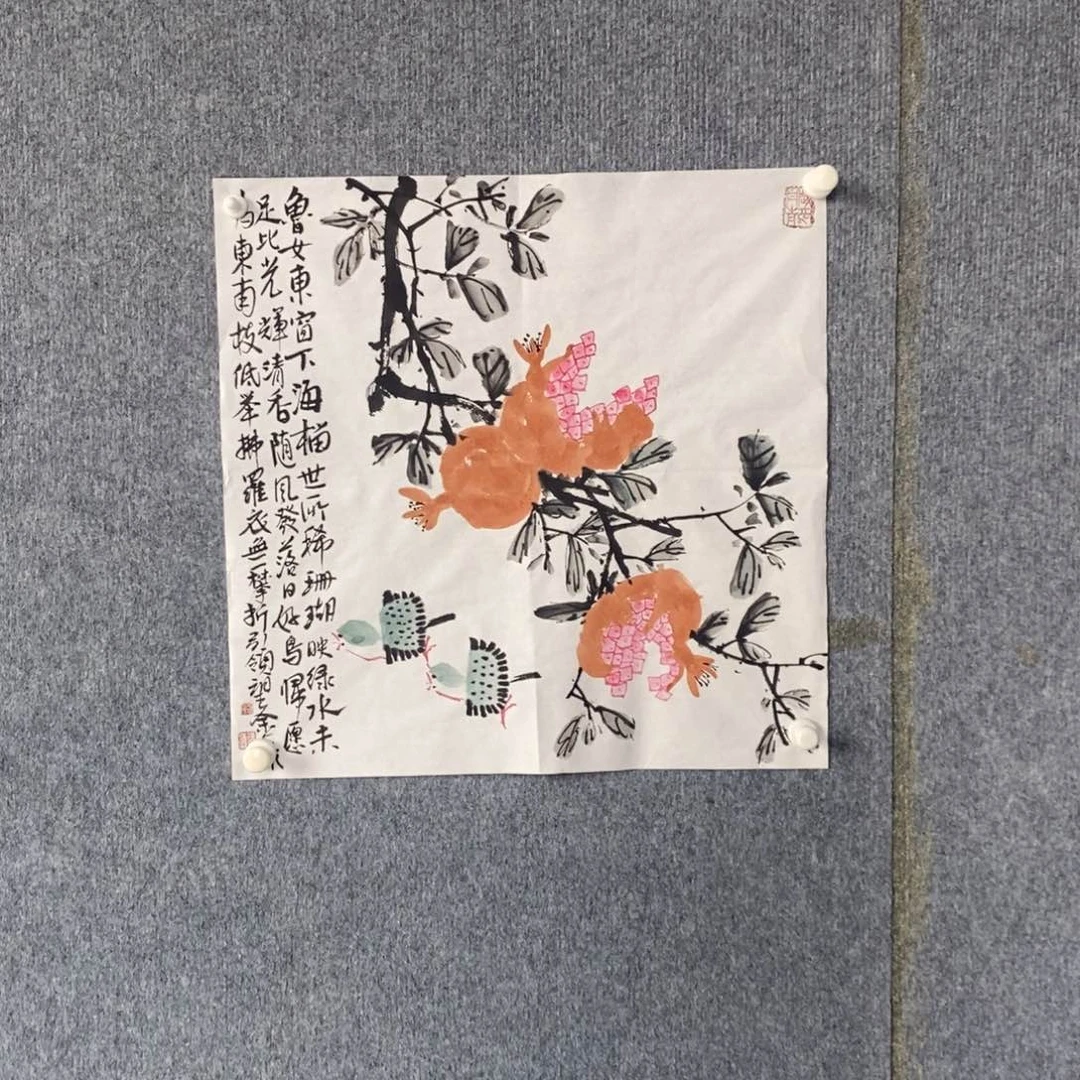 魯女東窗下海榴世所稀珊瑚映绿水未
足比光輝清香随風發落日好鳥歸愿
为東南枝低举拂羅衣無一攀折引領望金